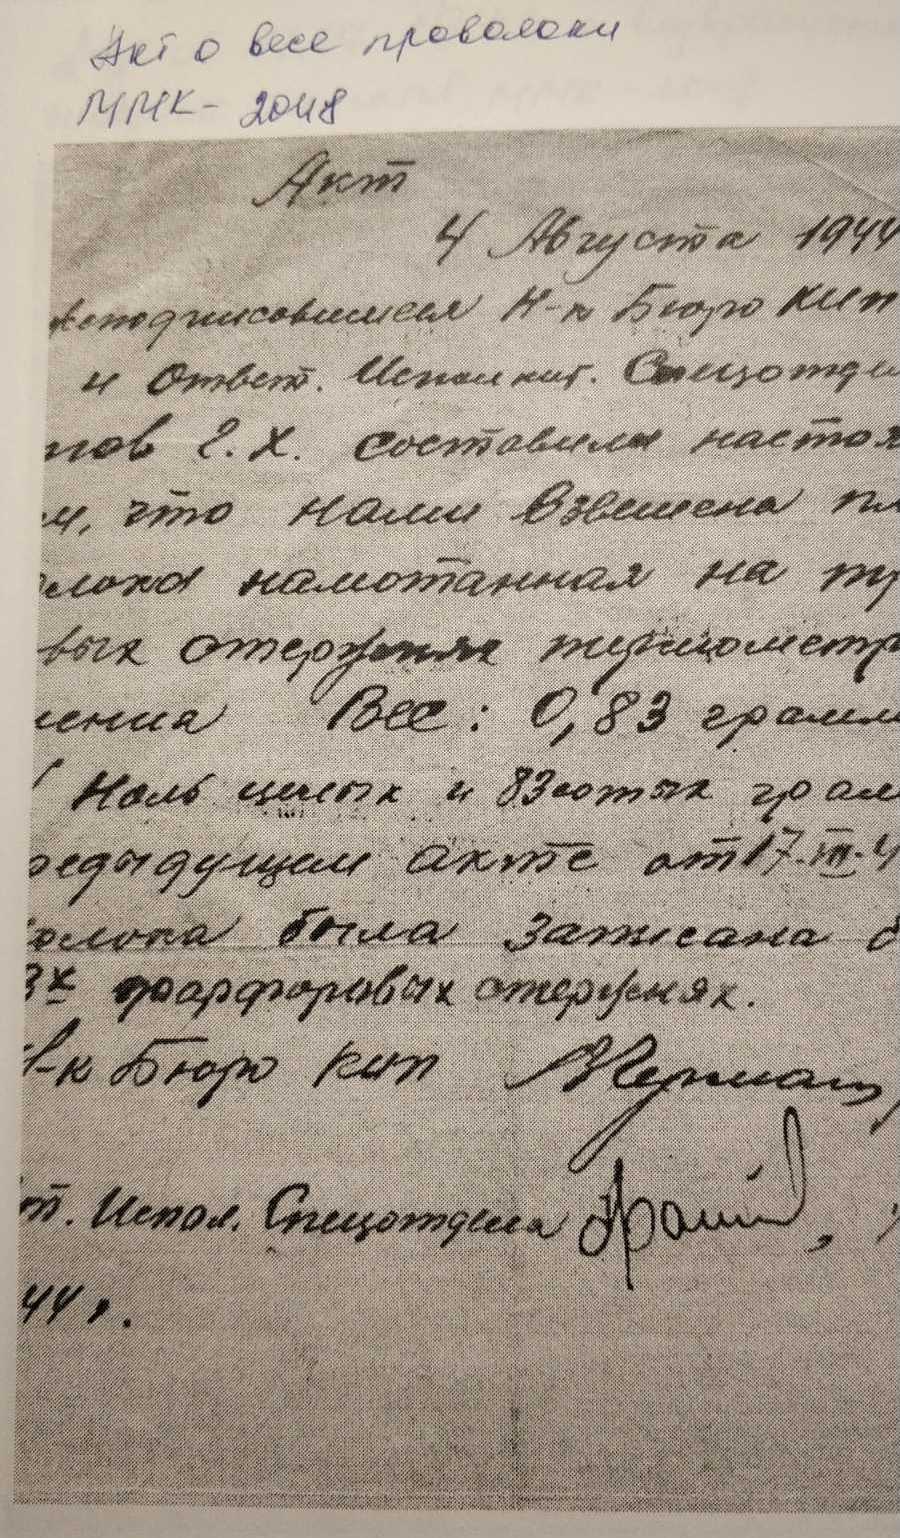 Акт о весе проволоки
ММК - 2048
Акт
4 Августа 1944
жеподписавшиеся Н-к Бюро КИП
и Ответ. Исполнит. Спецотде
пов Г. Х. составили настоя
м, что нами взвешена пл
олока намотанная на
вых стержнях термометр
ления Вес: 0,83 грамм
( Ноль целых и 83 сотых грам
редыдущем акте от 17.III.4
олока была записана
3х фарфоровых стержнях.
Н-к Бюро КИП
т. Испол. Спецотдела
44 г.